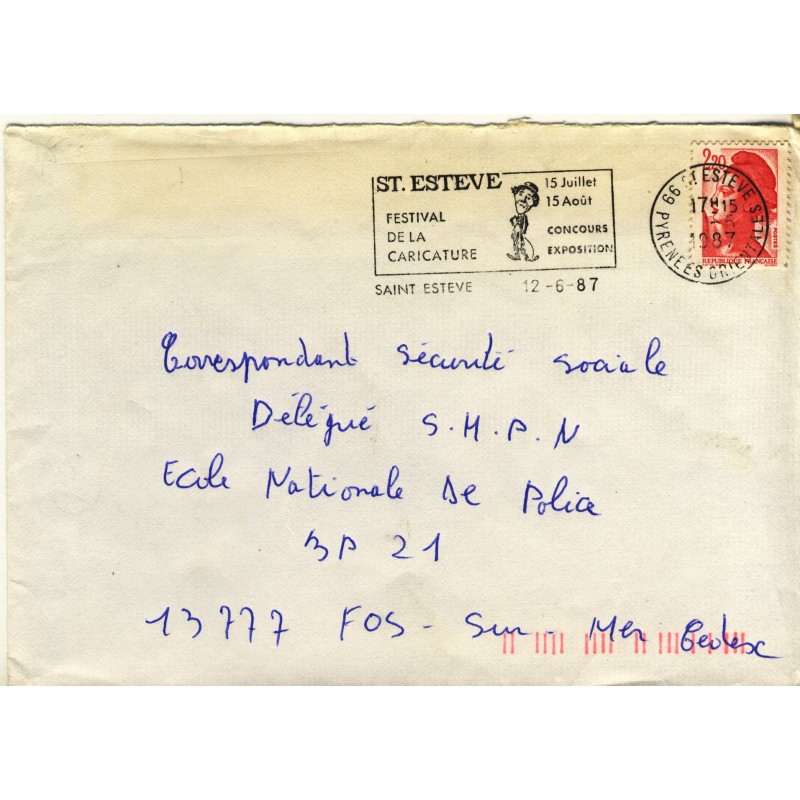 ST. ESTEVE
FESTIVAL
DE LA
CARICATURE
15 Juillet
15 Août
CONCOURS
EXPOSITION
SAINT ESTEVE 12-6-87
2,20
POSTES
REPUBLIQUE FRANÇAISE
66 ST ESTEVE
17H15
1987
PYRENEES ORIENTALES
Correspondant Sécurité Sociale
Délégué S.M.P.N
Ecole Nationale De Police
BP 21
13777 FOS-Sur-Mer Cedex